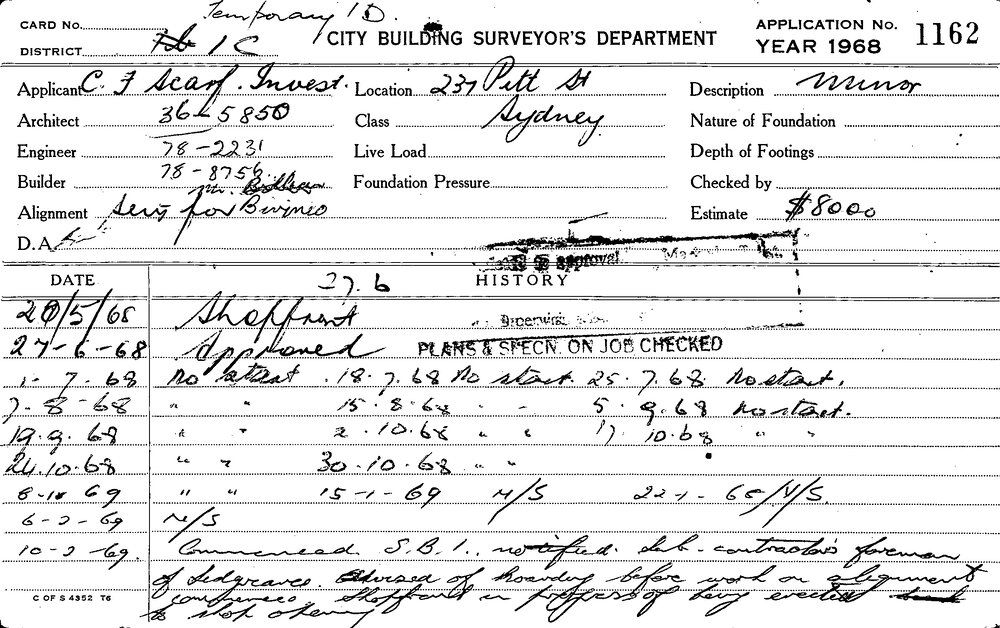 Temporary 1D.
CARD No.
DISTRICT 1C
CITY BUILDING SURVEYOR'S DEPARTMENT
APPLICATION No. 1162
YEAR 1968
Applicant C. F Scarf. Invest. Location 237 Pitt St Description Minor
Architect 36-5850 Class Sydney Nature of Foundation
Engineer 78-2231 Live Load Depth of Footings
Builder 78-8756 Foundation Pressure Checked by
Mr.
Alignment for Estimate $8000
D.A.
approval
DATE 27.6 HISTORY
20/5/68 Shopfront
27-6-68 Approved PLANS & SPECN. ON JOB CHECKED
1. 7. 68 No start .18.7.68 No start. 25.7.68. No start.
7-8-68 " " 15.8.68 " " 5.9.68 No start.
19.9.68 " " 2.10.68 " " 17.10.68 " "
24.10.68 " " 30.10.68 " "
8-1-69 " " 15-1-69 N/S 22-1-69 N/S.
6-2-69 N/S
10-2-69. Commenced. S.B.I., notified. Sub-contractors foreman
of Sedgraves. Advised of hoarding before work on alignment
commences Shopfront in progress of being erected
to shop opening
C OF S 4352 T6